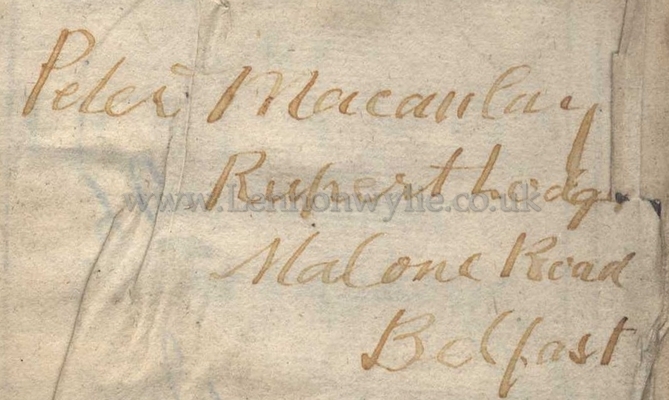 Peter Macaulay
Rupert Lodge
www.Lennonwylie.co.uk
Malone Road
Belfast